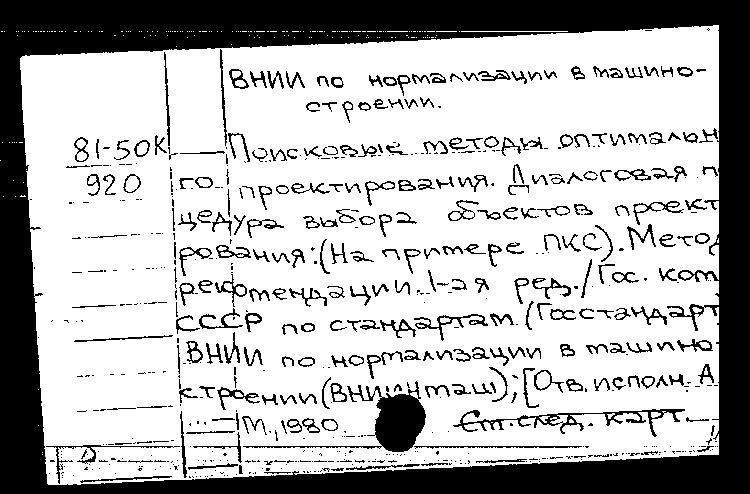 ВНИИ по нормализации в машино-
строении.
81-50К Поисковые методы оптимальн
920 го проектирования. Диалоговая п
цедура выбора объектов проект
рования: (На примере ПКС). Метод
рекомендации. 1-ая ред. / Гос. ком
СССР по стандартам (Госстандарт
ВНИИ по нормализации в машино-
строении (ВНИИНмаш); [Отв. исполн. А
М., 1980. См. след. карт.